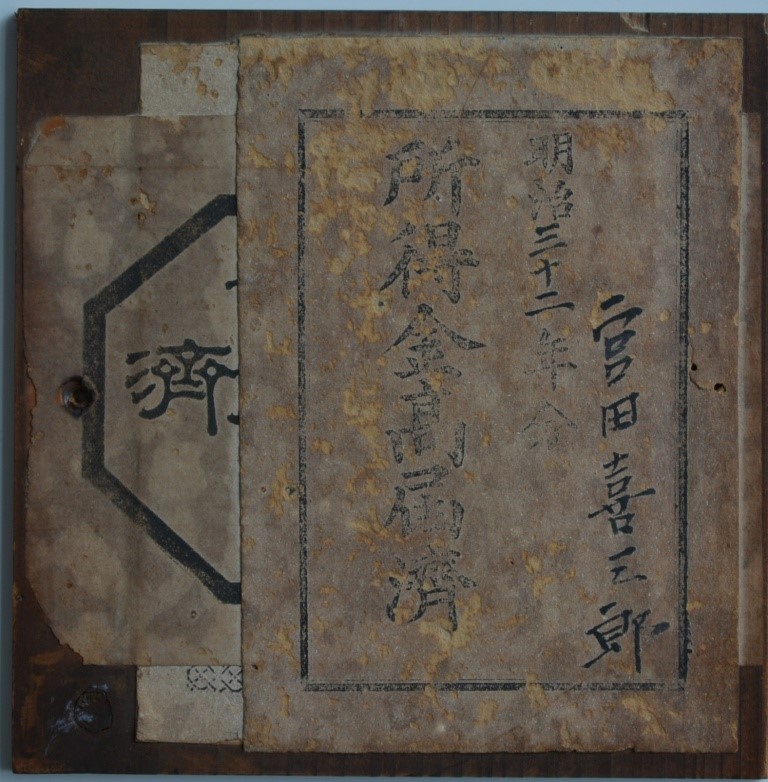 宮田喜三郎
明治三十二年分
所得金高届済
済